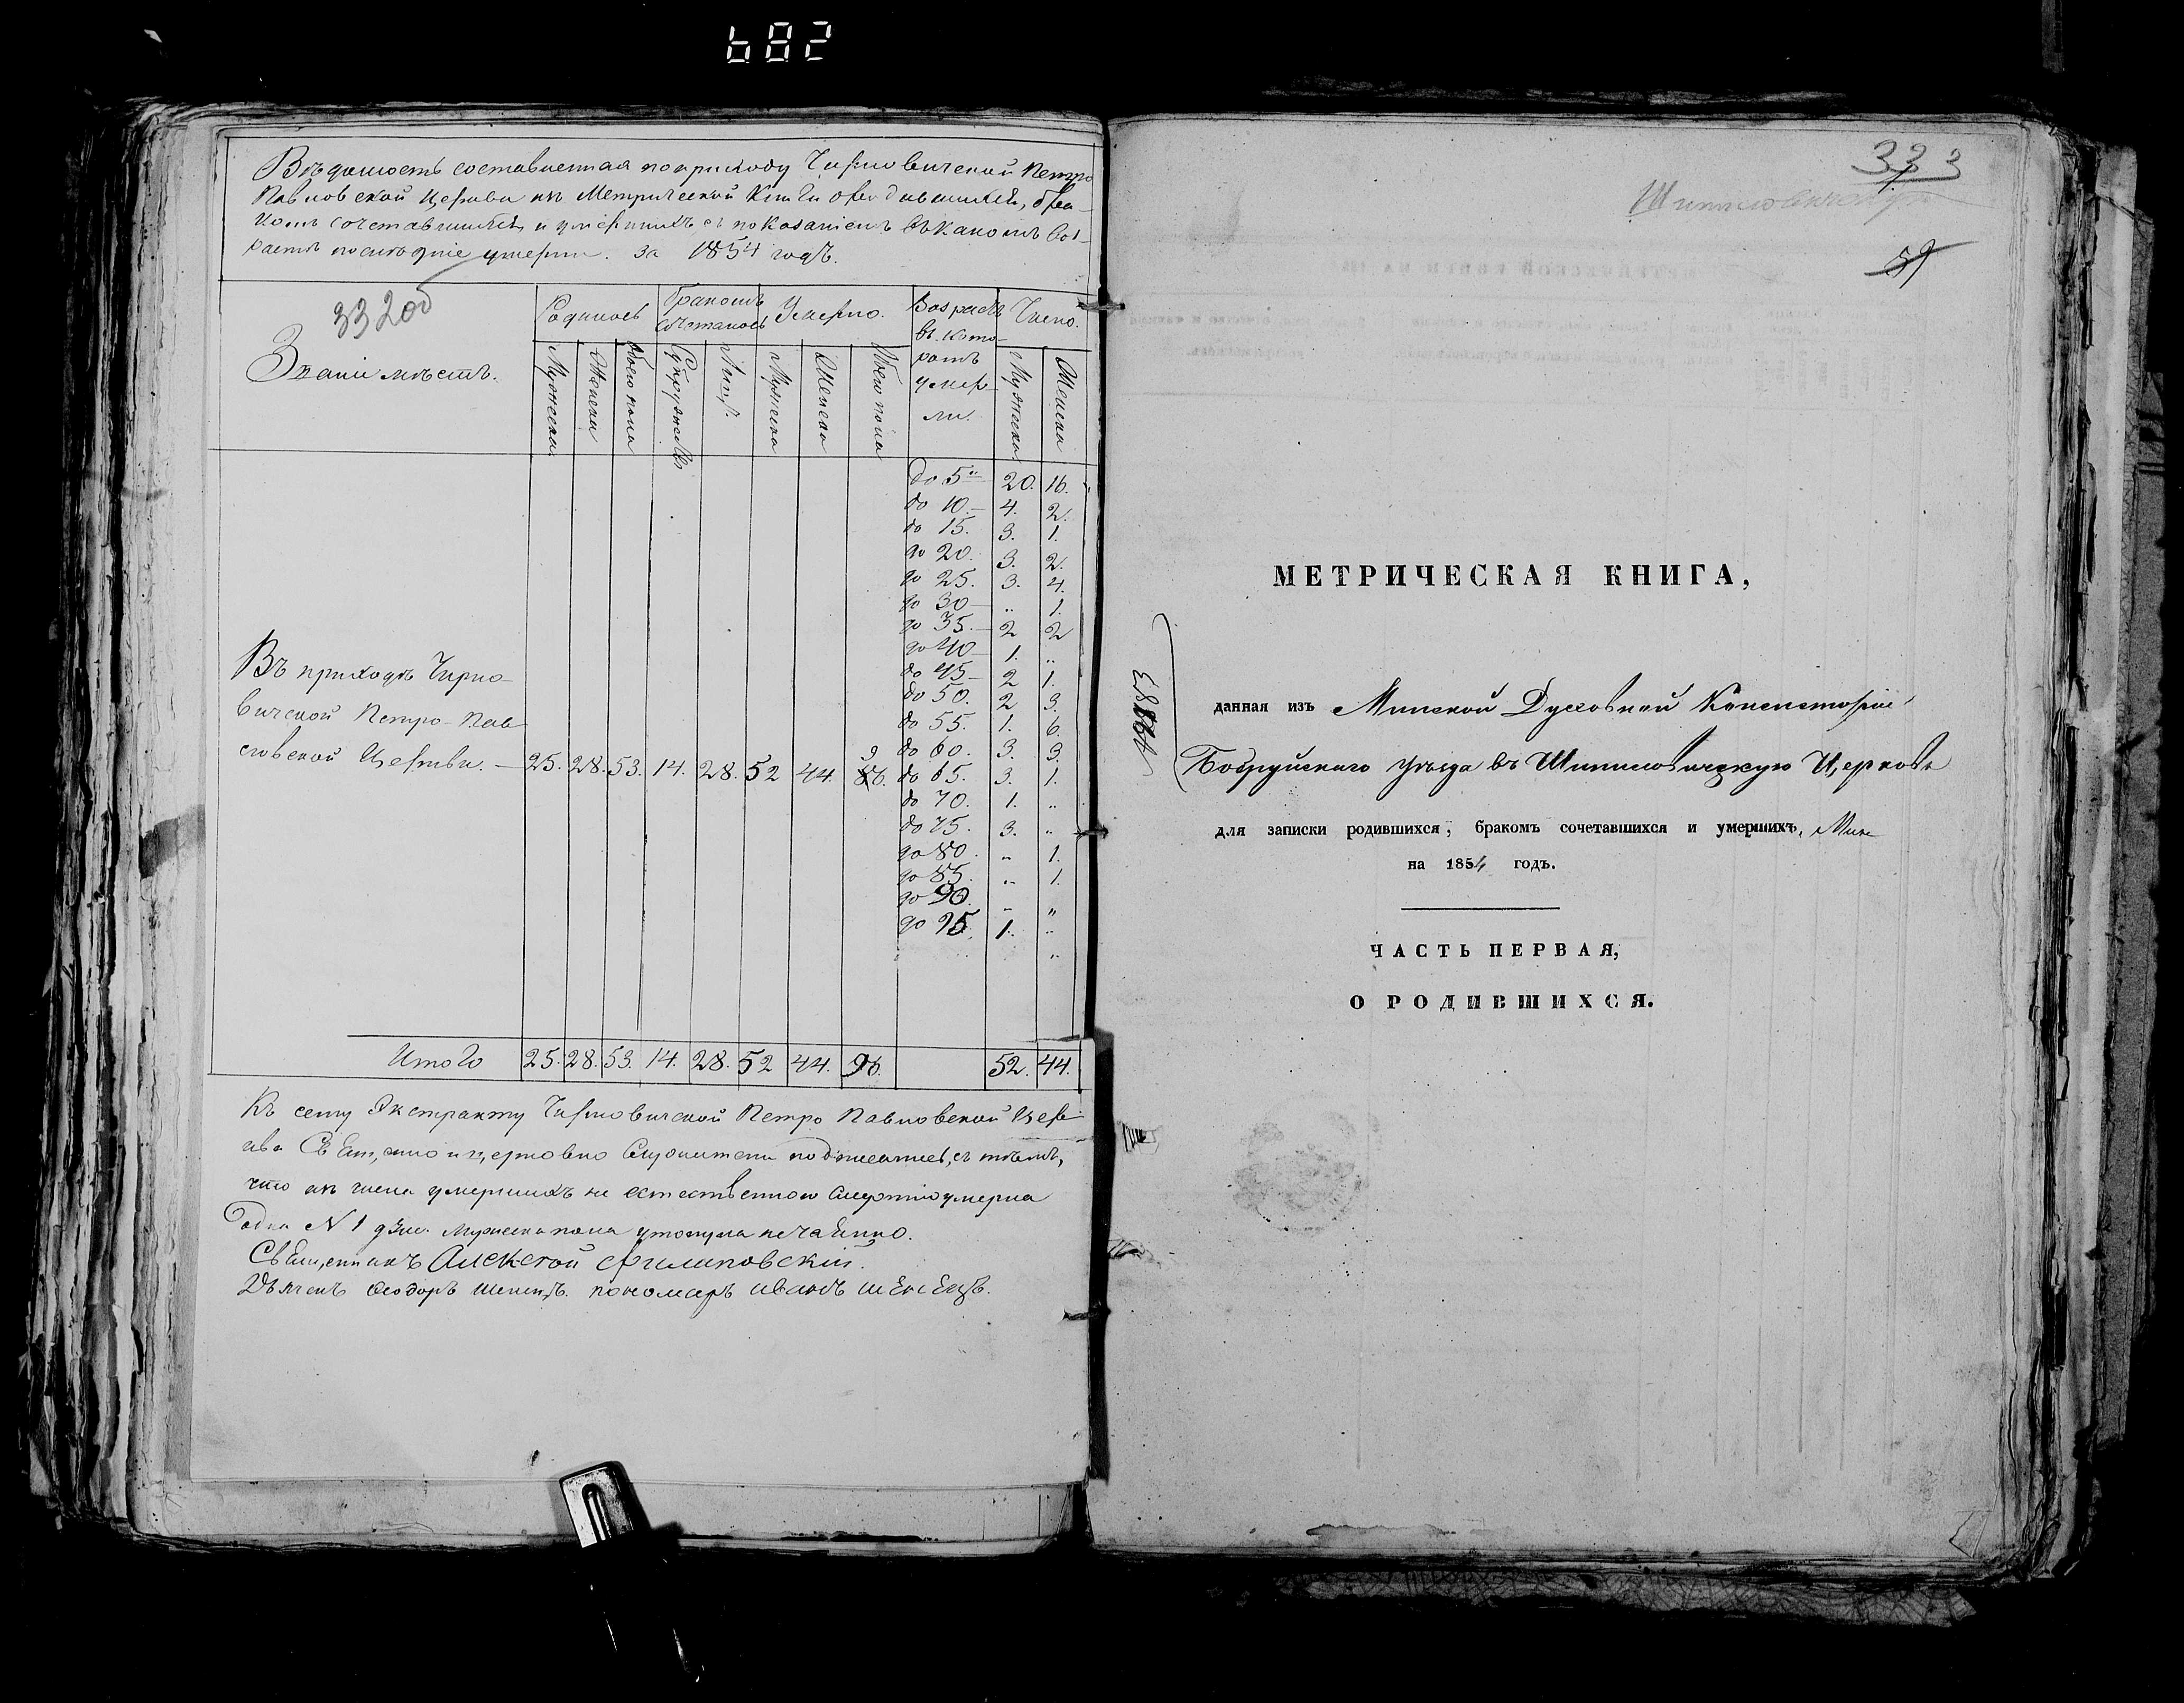 682
Вѣдомость составленная по приходу Чирковичской Петро
Павловской Церкви изъ Метрической Книги о родившихся, бра-
комъ сочетавшихся и умершихъ съ показаніемъ въ какомъ воз-
растѣ послѣдніе умерли. За 1854 годъ.
332об
Званіе мѣстъ.
Родилось
Бракомъ сочеталось
Умерло.
Возрастъ въ кото-
ромъ
умер-
ли.
Число.
Мужеска
Женска
Обоего пола
Супружествъ
Лицъ
Мужеска
Женска
Обоего пола
Мужеска
Женска
до 5 20. 16.
до 10. 4. 2.
до 15. 3. 1.
до 20. 3. 2.
до 25. 3. 4.
до 30 „ 1.
до 35. 2 2
до 40 1. „
до 45 2 1.
до 50. 2 3.
до 55. 1. 6.
до 60. 3. 3.
до 65. 3. 1.
до 70. 1. „
до 75. 3. „
до 80. „ 1.
до 85. „ 1.
до 90. „ „
до 95. 1. „
Въ приходѣ Чирко-
вичской Петро-Пав
ловской Церкви. — 25. 28. 53. 14. 28. 52 44. 96.
Итого 25. 28. 53. 14. 28. 52 44. 96. 52. 44.
Къ сему Экстракту Чирковичской Петро Павловской Цер
кви Священно и церковно Служители подписались, съ тѣмъ,
что изъ числа умершихъ не естественною Смертію умерла
одна N 1 душа Мужеска пола утонула нечаянно.
Священникъ Алексѣй Филиповскій.
Дьячекъ Ѳеодоръ пономарь иванъ
333
59
МЕТРИЧЕСКАЯ КНИГА,
данная изъ Минской Духовной Консисторіи
Бобруйскаго уѣзда въ Шипиловичскую Церковь
для записки родившихся, бракомъ сочетавшихся и умершихъ,
на 1854 годъ.
ЧАСТЬ ПЕРВАЯ,
О РОДИВШИХСЯ.